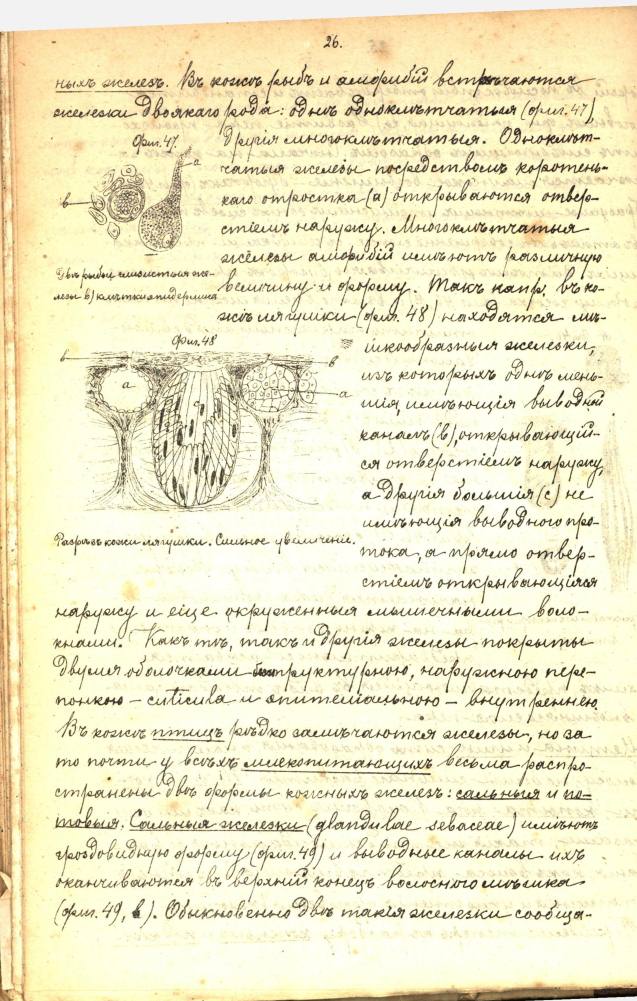 26.
ныхъ железъ. Въ кожѣ рыбъ и амфибій встрѣчаются
железки двоякаго рода: однѣ одноклѣтчатыя (фиг. 47),
другія многоклѣтчатыя. Одноклѣт-
чатыя железы посредствомъ коротень-
каго отростка (а) открываются отвер-
стіемъ наружу. Многоклѣтчатыя
железы амфибій имѣютъ различную
величину и форму. Такъ напр. въ ко-
жѣ лягушки (фиг. 48) находятся мѣ-
Фиг. 47.
а
в
Двѣ рыбьи слизистыя же-
лезы в) клѣтки эпидермиса
Фиг. 48
в
в
а
а
с
Разрѣзъ кожи лягушки. Сильное увеличеніе.
шкообразныя железки,
изъ которыхъ однѣ мень-
шія, имѣющія выводной
каналъ (в), открывающій-
ся отверстіемъ наружу,
а другія большія (с) не
имѣющія выводного про-
тока, а прямо отвер-
стіемъ открывающіяся
наружу и еще окруженныя мышечными воло-
кнами. Какъ тѣ, такъ и другія железы покрыты
двумя оболочками безструктурною, наружною пере-
понкою – cuticula и эпителіальною – внутреннею.
Въ кожѣ птицъ рѣдко замѣчаются железы, но за
то почти у всѣхъ млекопитающихъ весьма распро-
странены двѣ формы кожныхъ железъ: сальныя и по-
товыя. Сальныя железки (glandulae sebaceae) имѣютъ
гроздовидную форму (фиг. 49) и выводные каналы ихъ
оканчиваются въ верхній конецъ волосного мѣшка
(фиг. 49, в). Обыкновенно двѣ такія железки сообща-